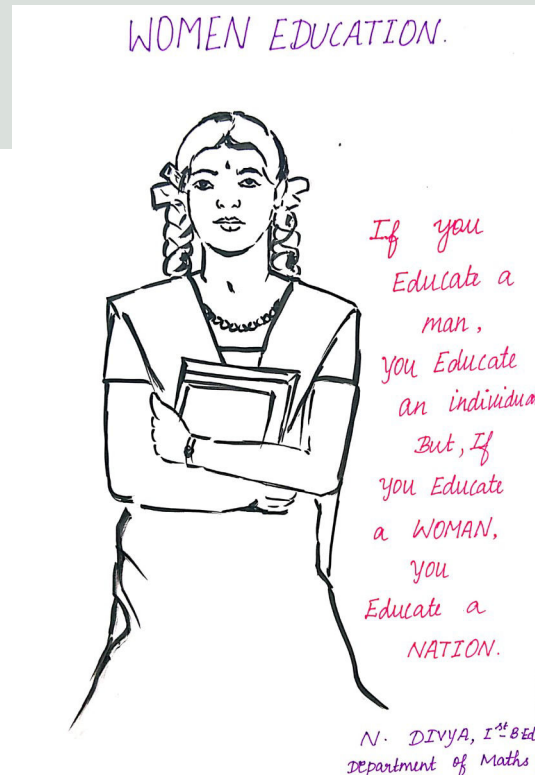 WOMEN EDUCATION.
If you
Educate a
man,
you Educate
an individua
But, If
you Educate
a WOMAN,
you
Educate a
NATION.
N. DIVYA, Ist B.Ed
Department of Maths